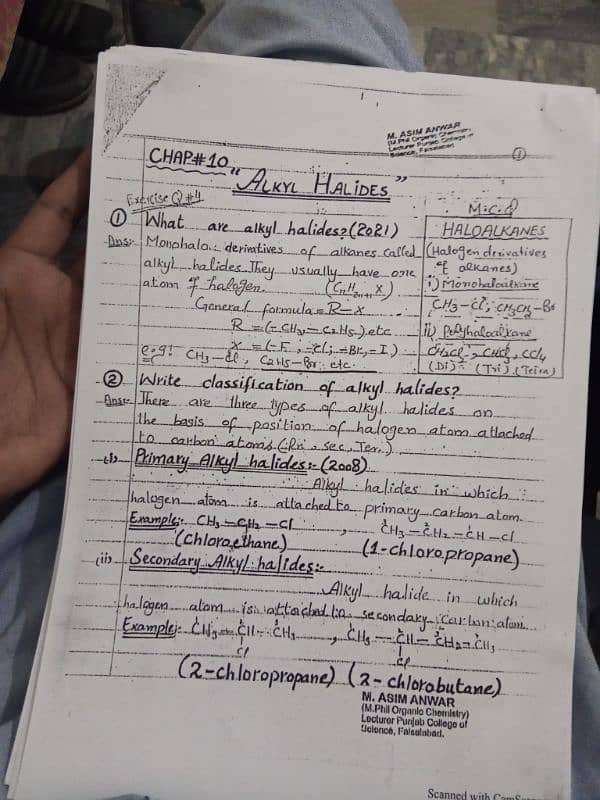 M. ASIM ANWAR
(M.Phil Organic Chemistry)
Lecturer Punjab College of
Science, Faisalabad.
①
CHAP#10
"ALKYL HALIDES"
Exercise Q#4
① What are alkyl halides? (2021)
Ans:- Monohalo derivatives of alkanes called
alkyl halides. They usually have one
atom of halogen. (CnH2n+1 X)
General formula = R-X
R = (-CH3, -C2H5) etc
X = (-F, -Cl, -Br, -I)
e.g: CH3-Cl, C2H5-Br etc.
M.C.Q
HALOALKANES
(Halogen derivatives
of alkanes)
i) Monohaloalkane
CH3-Cl, CH3CH2-Br
ii) Polyhaloalkane
CH2Cl2, CHCl3, CCl4
(Di) (Tri) (Tetra)
② Write classification of alkyl halides?
Ans:- There are three types of alkyl halides on
the basis of position of halogen atom attached
to carbon atoms (Pri, Sec, Ter.)
(i) Primary Alkyl halides:- (2008)
Alkyl halides in which
halogen atom is attached to primary carbon atom.
Example:- CH3-CH2-Cl , CH3-CH2-CH-Cl
3 2 1
(Chloroethane) (1-chloropropane)
(ii) Secondary Alkyl halides:-
Alkyl halide in which
halogen atom is attached to secondary carbon atom.
Example:- CH3-CH-CH3 , CH3-CH-CH2-CH3
Cl Cl
(2-chloropropane) (2-chlorobutane)
M. ASIM ANWAR
(M.Phil Organic Chemistry)
Lecturer Punjab College of
Science, Faisalabad.
Scanned with